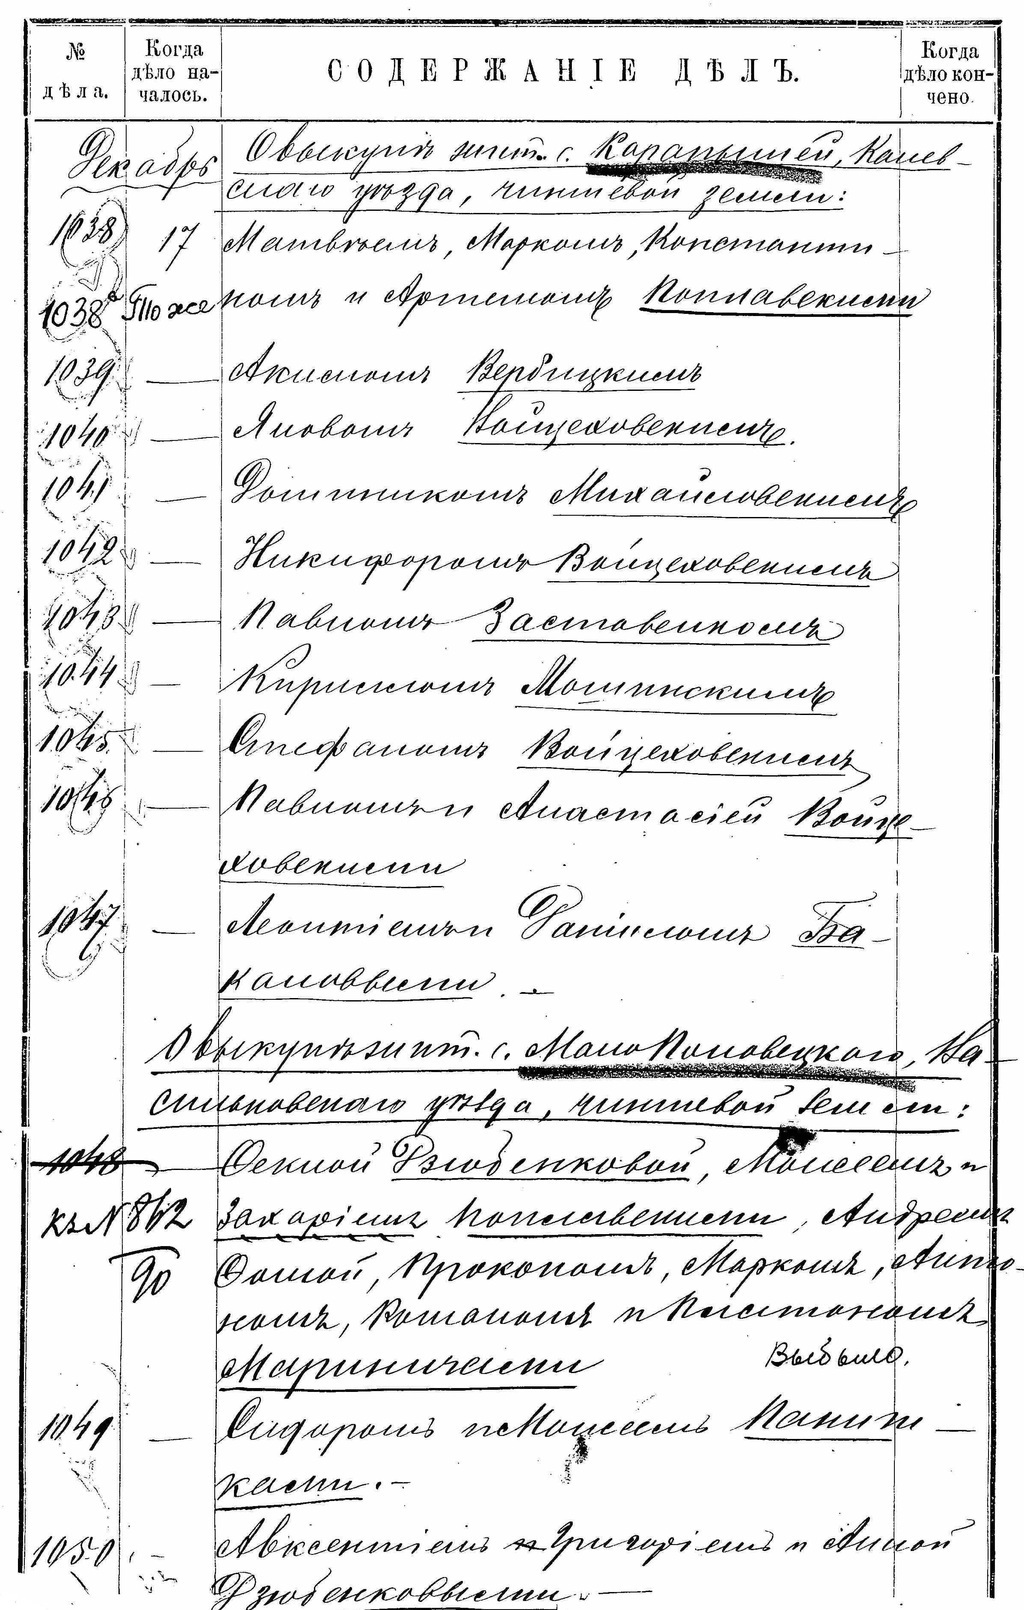 № дѣла.
Когда дѣло началось.
СОДЕРЖАНІЕ ДѢЛЪ.
Когда дѣло кончено.
Декабрь О выкупѣ жит. с. Карапышей, Канев-
скаго уѣзда, чиншевой земли:
1038 17 Матвѣемъ, Маркомъ, Константи-
1038а То же номъ и Артемомъ Поплавскими
1039 — Акимомъ Вербицкимъ
1040 — Яковомъ Войцеховскимъ.
1041 — Доминикомъ Михайловскимъ
1042 — Никифоромъ Войцеховскимъ
1043 — Павломъ Заставенкомъ
1044 — Кирилломъ Мошинскимъ
1045 — Стефаномъ Войцеховскимъ
1046 — Павломъ и Анастасіей Войце-
ховскими
1047 — Леонтіемъ и Даніиломъ Ба-
кановыми. —
О выкупѣ жит. с. Мало Половецкаго, Ва-
сильковскаго уѣзда, чиншевой земли:
1048 — Феклой Дзюбенковой, Моисеемъ и
къ № 862 Захаріемъ Поплавскими, Андреемъ
90 Фомой, Прокопомъ, Маркомъ, Анто-
номъ, Романомъ и Платономъ
Мариничами Выбыло.
1049 — Сидоромъ и Моисеемъ
ками. —
1050 — Авксентіемъ и Григоріемъ и Анной
Дзюбенковыми. —